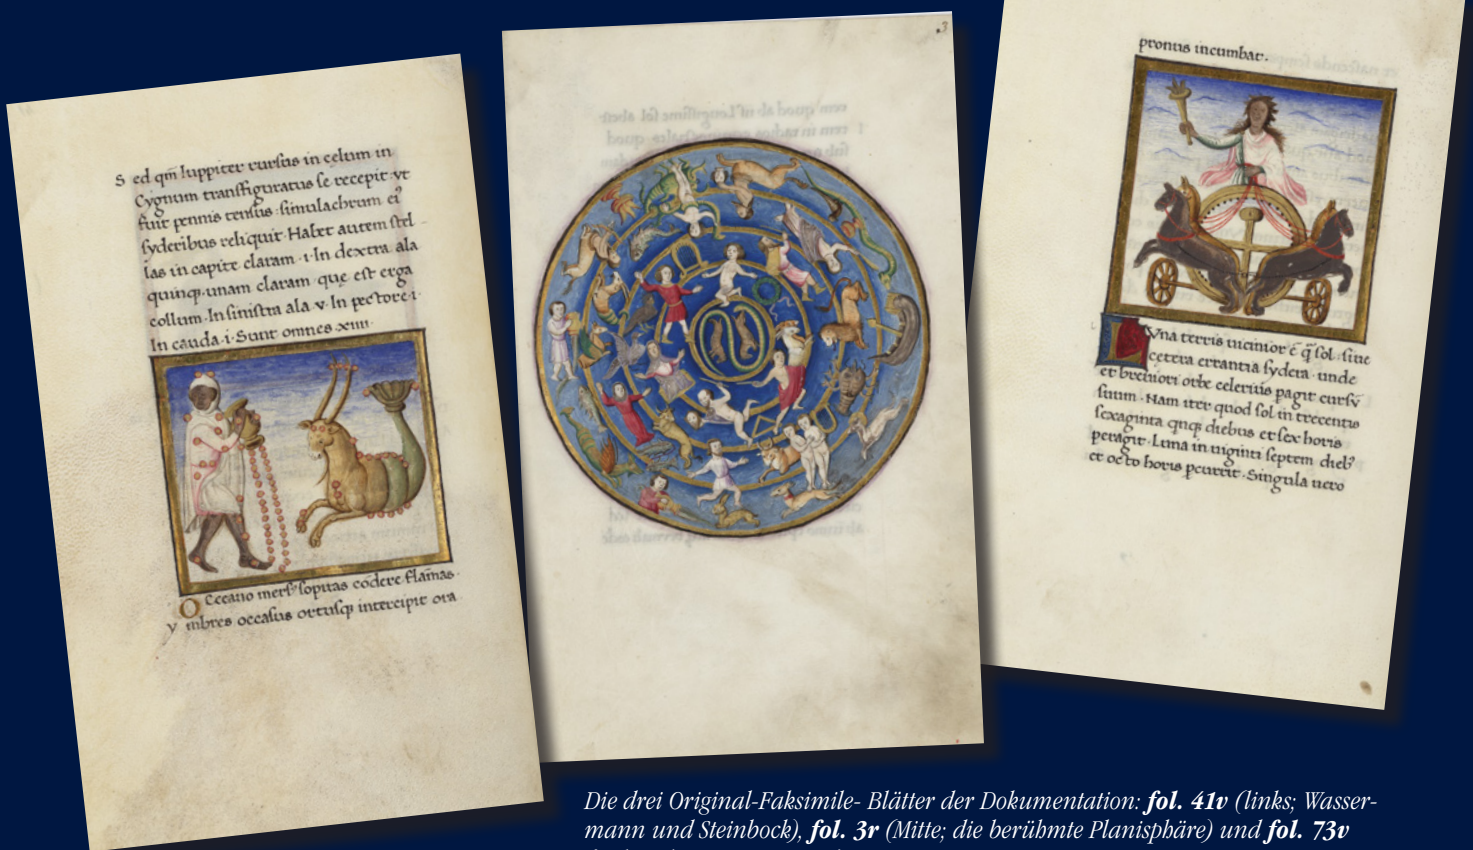 S ed qm̄ Iuppiter rursus in celum in
Cygnum transfiguratus se recepit vt
fuit pennis tensus simulachrum ei⁹
syderibus reliquit. Habet autem stel
las in capite claram .i. In dextra ala
quinq. unam claram que est erga
collum. In sinistra ala .v. In pectore .i.
In cauda .i. Sunt omnes .xiiii.
O Cceano mers sopitas cōdere flāmas.
y mbres occasus ortusq intercipit ora
.3
pronus incumbat.
L Vna terris uicinior ē q̄ sol siue
cetera errantia sydera unde
et breuiori orbe celerius pagit cursū
suum. Nam iter quod sol in trecentis
sexaginta qnq diebus et sex horis
peragit. Luna in uiginti septem dieb⁹
et octo horis pcurrit. Singula uero
Die drei Original-Faksimile- Blätter der Dokumentation: fol. 41v (links; Wasser-
mann und Steinbock), fol. 3r (Mitte; die berühmte Planisphäre) und fol. 73v